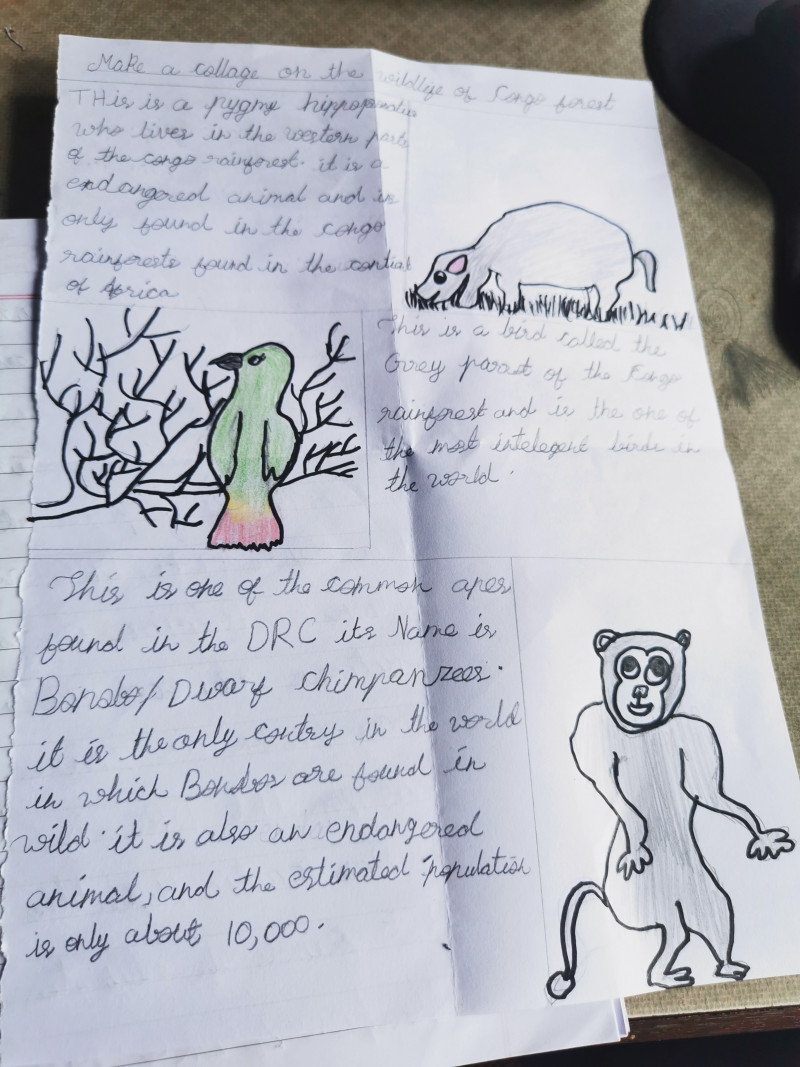 Make a collage on the wildlife of Congo forest
THis is a pygmy hippopomatus
who lives in the western parts
of the congo rainforest. it is a
endangered animal and is
only found in the congo
rainforests found in the contiat
of Africa
This is a bird called the
Grey parast of the Congo
rainforest and is the one of
the most intelegent birds in
the world.
This is one of the common apes
found in the DRC its Name is
Bonobo/Dwarf chimpanzees.
it is the only contry in the world
in which Bonobos are found in
wild. it is also an endangered
animal, and the estimated population
is only about 10,000.